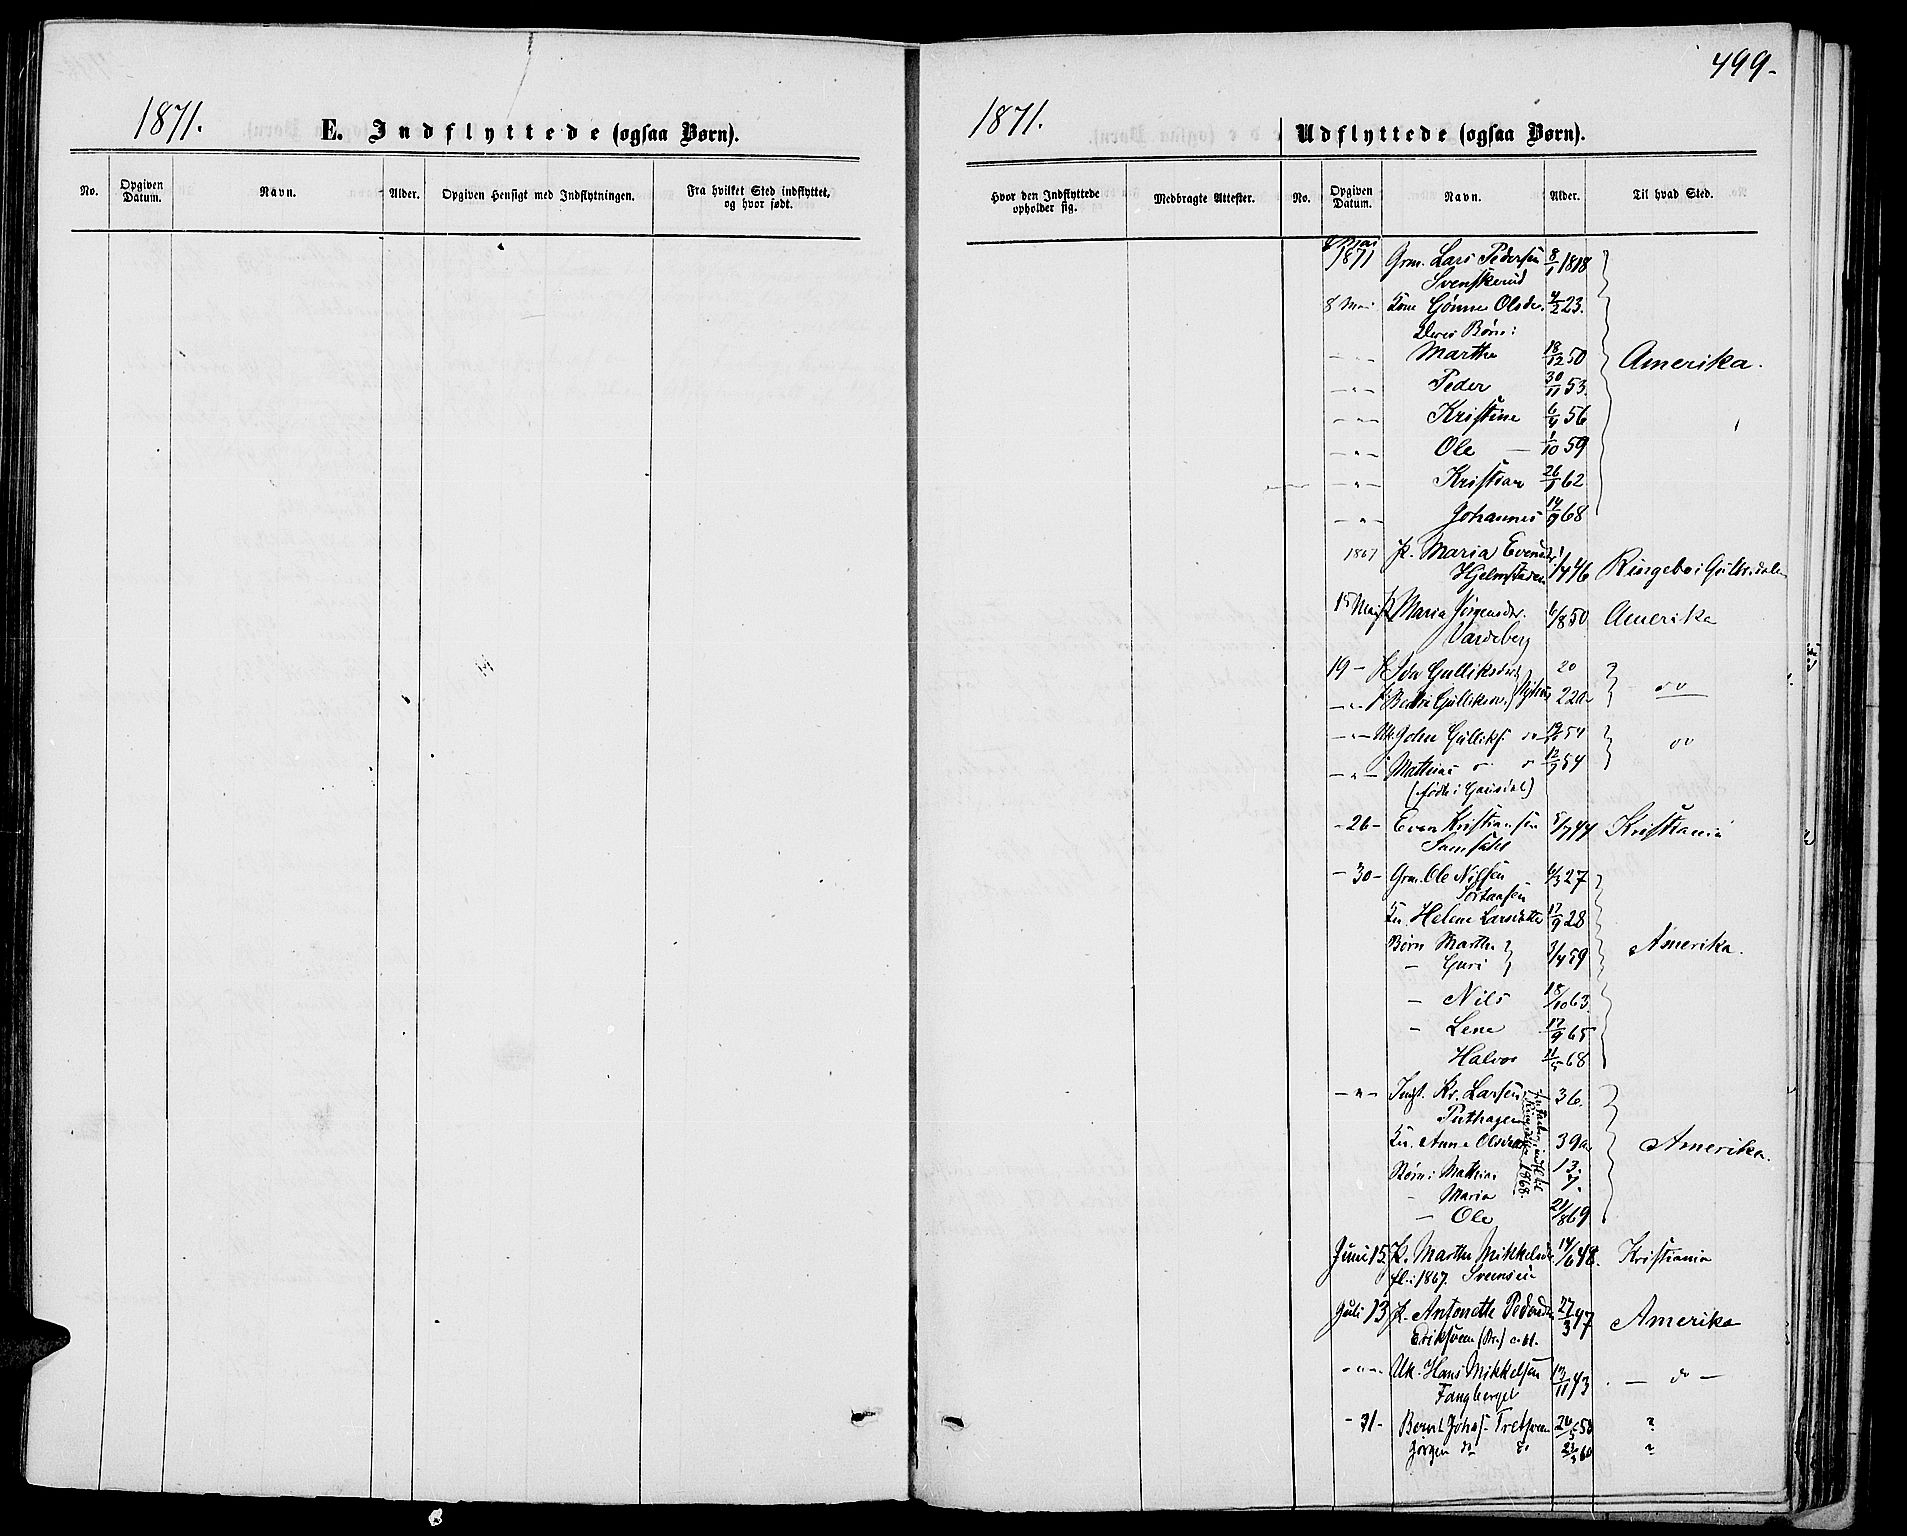 499-
1871.
E. Indflyttede (ogsaa Børn).
No.
Opgiven Datum.
Navn.
Alder.
Opgiven Hensigt med Indflytningen.
Fra hvilket Sted indflyttet, og hvor født.
1871.
Udflyttede (ogsaa Børn).
Hvor den Indflyttede opholder sig.
Medbragte Attester.
No.
Opgiven Datum.
Navn.
Alder.
Til hvad Sted.
1871 Grm. Lars Pedersen 8/1 1818
Svenskerud
8 Mai Kone Gønner Olsdr. 4/2 23.
Deres Børn:
— " — Marthe 18/12 50 Amerika.
— " — Peder 30/11 53.
— " — Kristine 6/9 56
— " — Ole — 1/10 59
— " — Kristian 26/1 62
— " — Johannes 14/9 68
1867 P. Maria Evensd. 46 Ringebo i Gulbr.dalen
Hjelmstaden
15 Mai P. Maria Jørgensdr. 6/8 50 Amerika
Vardeberg
19 — P. Ida Gulliksdr. 20
— " — P. Bertha Gulliksdr. 22 a. do
— " — Uk. John Gulliks. do 54 do
— " — Mathias 12/9 54
(født i Gausdal)
- 26 - Even Kristiansen 5/7 44 Kristiania
- 30 - Grm. Ole Nilsen 6/3 27
Ku. Helene Larsdatter 17/9 28
Børn Marthe
— Guri 3/4 59 Amerika.
— Nils 18/10 63.
— Lene 17/9 65
Halvor 21/5 68
— " — Inst. Kr. Larsen 36.
Puthagen
Ku. Anna Olsdatter 39 a. Amerika.
Børn: Mathias 13.
— Maria 7.
— Ole 21/8 69
1868.
Juni 15. P. Marthe Mikkelsdr. 14/6 48. Kristiania
fl. i 1867. Sveinsen
Juli 13 P. Antonette Pedersdr. 27/3 47 Amerika
Eriksveen
— " — Uk. Hans Mikkelsen 13/11 43 — do —
Fangberget
- 31 - Bernt Johs. Tretsveen 26/5 58 ?
Jørgen do do 60 ?